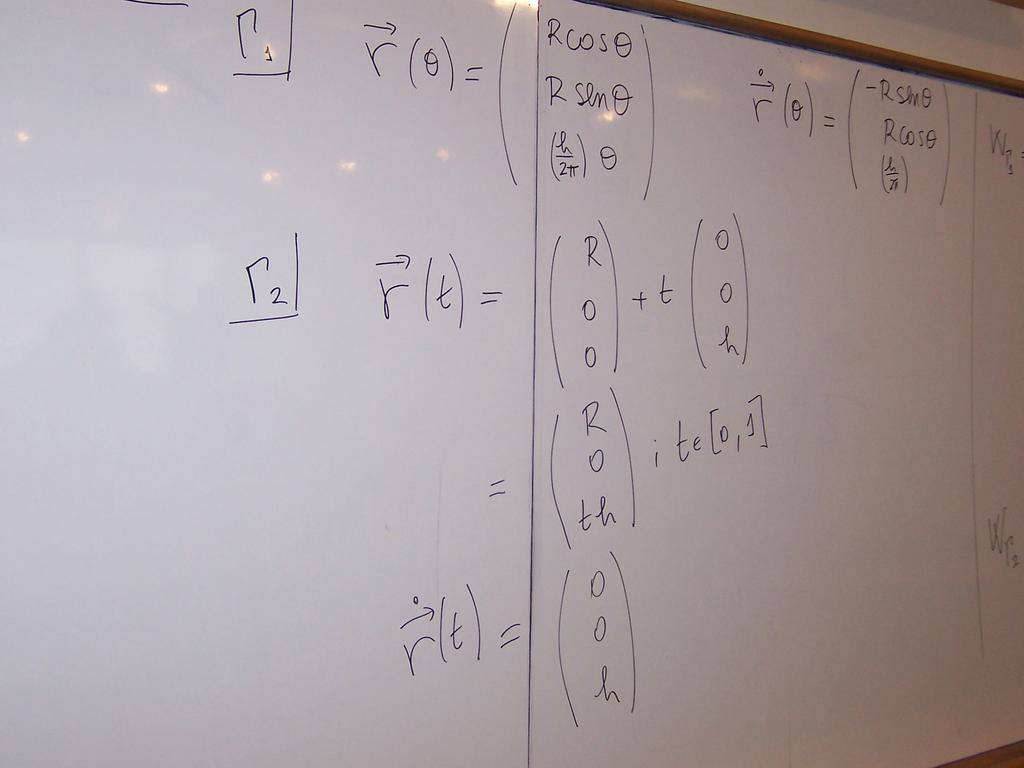 Γ₁ r⃗(θ) = (Rcosθ, Rsenθ, (h/2π) θ) ṙ⃗(θ) = (-Rsenθ, Rcosθ, (h/π)) W_Γ₁ =
Γ₂ r⃗(t) = (R, 0, 0) + t (0, 0, h)
= (R, 0, th) ; t ∈ [0, 1]
W_Γ₂
ṙ⃗(t) = (0, 0, h)